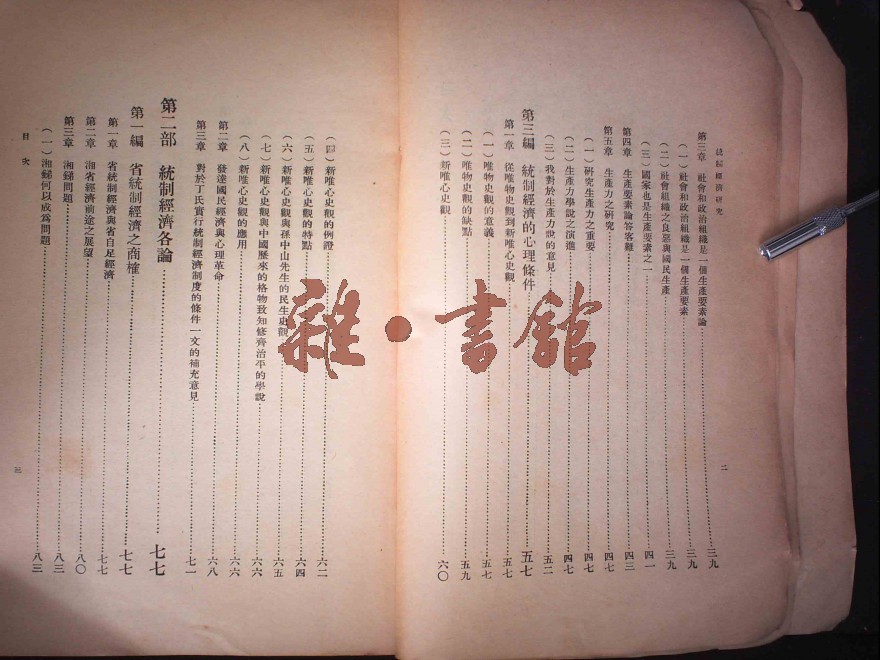 統制經濟研究
第三章 社會和政治組織是一個生產要素論……三九
(一)社會和政治組織是一個生產要素……三九
(二)社會組織之良惡與國民生產……三九
(三)國家也是生產要素之一……四一
第四章 生產要素論答客難……四三
第五章 生產力之研究……四七
(一)研究生產力之重要……四七
(二)生產力學說之演進……四七
(三)我對於生產力說的意見……五二
第三編 統制經濟的心理條件……五七
第一章 從唯物史觀到新唯心史觀……五七
(一)唯物史觀的意義……五七
(二)唯物史觀的缺點……五九
(三)新唯心史觀……六〇
二
(四)新唯心史觀的例證……六二
(五)新唯心史觀的特點……六四
(六)新唯心史觀與孫中山先生的民生史觀……六五
(七)新唯心史觀與中國歷來的格物致知修齊治平的學說……六六
(八)新唯心史觀的應用……六六
第二章 發達國民經濟與心理革命……六八
第三章 對於丁氏實行統制經濟制度的條件一文的補充意見……七一
第二部 統制經濟各論……七七
第一編 省統制經濟之商榷……七七
第一章 省統制經濟與省自足經濟……七七
第二章 湘省經濟前途之展望……八〇
第三章 湘銻問題……八三
(一)湘銻何以成爲問題……八三
目次
三
雜·書館